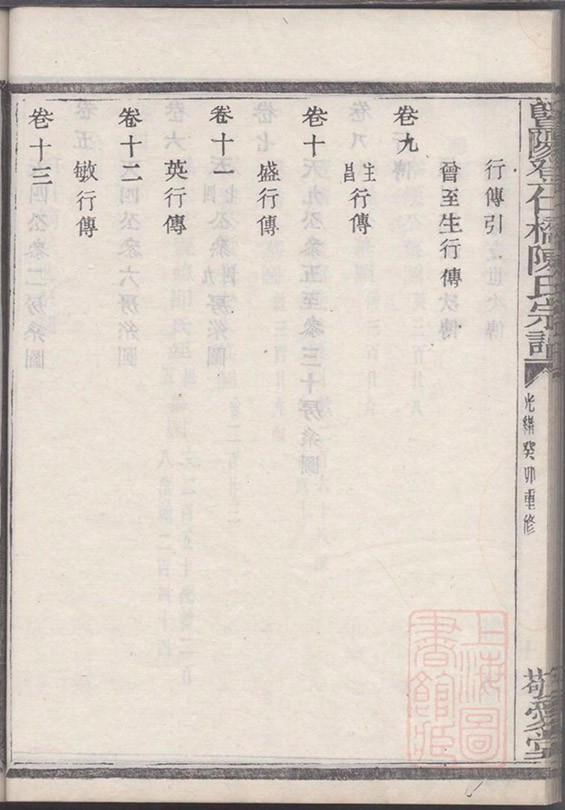 暨陽登仁橋陳氏宗譜
光緒癸卯重修
敬愛堂
行傳引
晉至生行傳
卷九
生昌行傳
卷十
盛行傳
卷十一
英行傳
卷十二
敏行傳
卷十三
上海圖書館藏